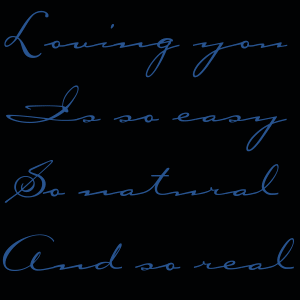 Loving you
Is so easy
So natural
And so real